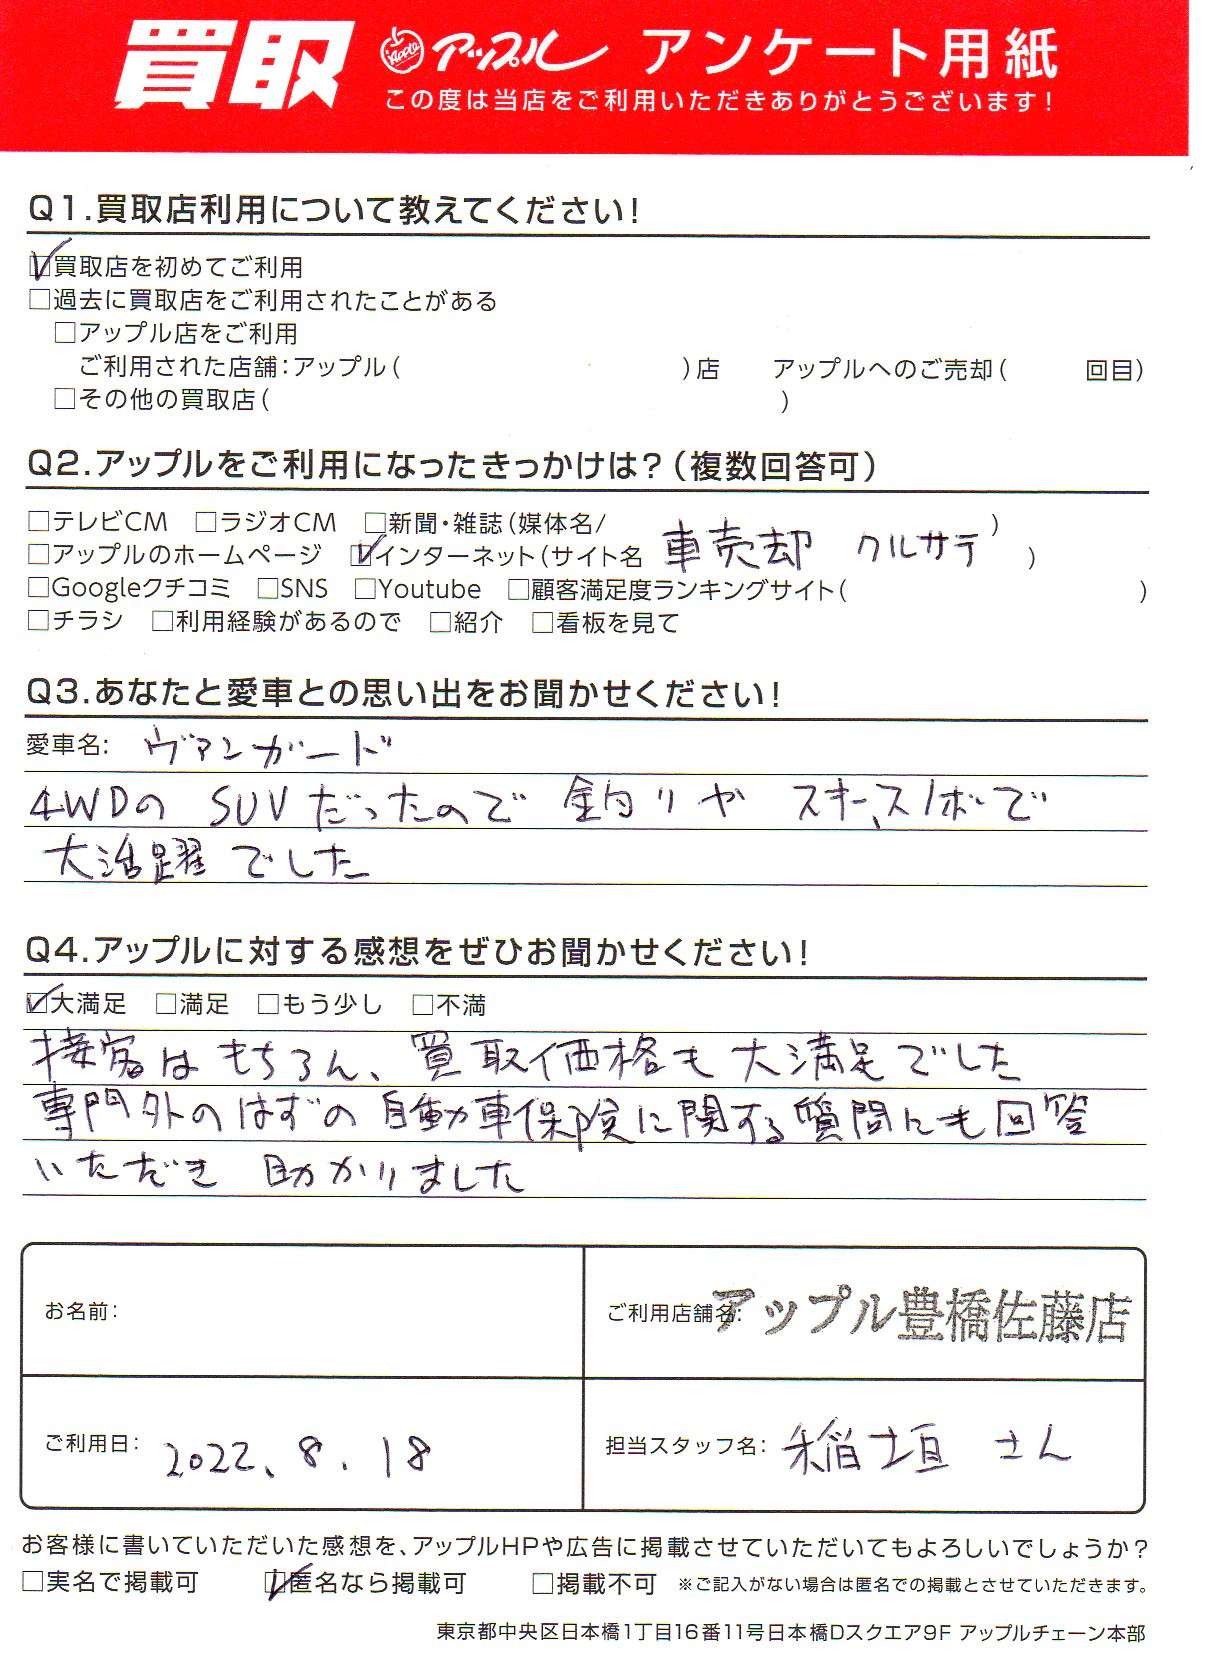 買取 Apple アップル アンケート用紙
この度は当店をご利用いただきありがとうございます!
Q1.買取店利用について教えてください!
☑買取店を初めてご利用
□過去に買取店をご利用されたことがある
□アップル店をご利用
ご利用された店舗:アップル( )店 アップルへのご売却( 回目)
□その他の買取店( )
Q2.アップルをご利用になったきっかけは?(複数回答可)
□テレビCM □ラジオCM □新聞・雑誌(媒体名/ )
□アップルのホームページ ☑インターネット(サイト名 車売却 クルサテ )
□Googleクチコミ □SNS □Youtube □顧客満足度ランキングサイト( )
□チラシ □利用経験があるので □紹介 □看板を見て
Q3.あなたと愛車との思い出をお聞かせください!
愛車名: ヴァンガード
4WDの SUVだったので 釣りや スキー、スノボーで
大活躍でした
Q4.アップルに対する感想をぜひお聞かせください!
☑大満足 □満足 □もう少し □不満
接客はもちろん、買取価格も大満足でした
専門外のはずの自動車保険に関する質問にも回答
いただき 助かりました
お名前: ご利用店舗名: アップル豊橋佐藤店
ご利用日: 2022、8、18 担当スタッフ名: 稲垣 さん
お客様に書いていただいた感想を、アップルHPや広告に掲載させていただいてもよろしいでしょうか?
□実名で掲載可 ☑匿名なら掲載可 □掲載不可 ※ご記入がない場合は匿名での掲載とさせていただきます。
東京都中央区日本橋1丁目16番11号日本橋Dスクエア9F アップルチェーン本部